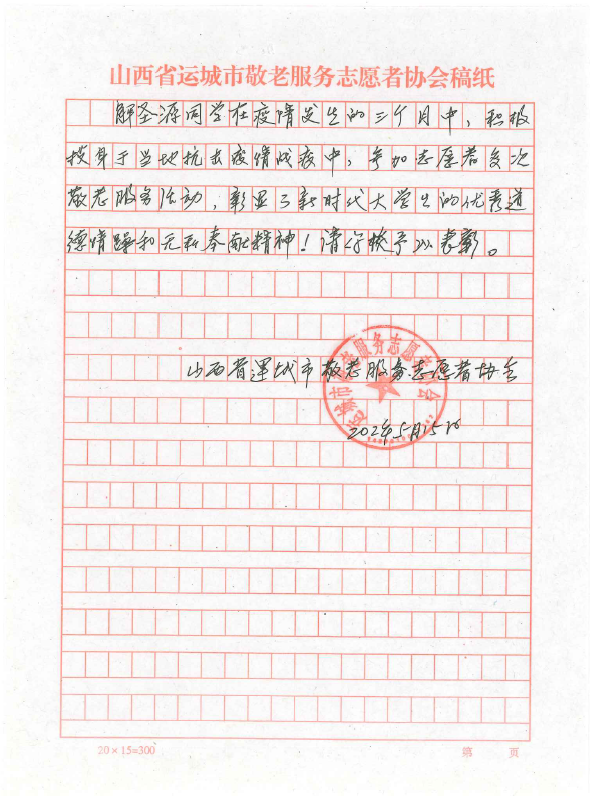 山西省运城市敬老服务志愿者协会稿纸
解圣源同学在疫情发生的三个月中，积极
投身于当地抗击疫情战疫中，参加志愿者多次
敬老服务活动，彰显了新时代大学生的优秀道
德情操和无私奉献精神！请学校予以表彰。
山西省运城市敬老服务志愿者协会
运城市敬老服务志愿者协会
5月15日
20×15=300
第 页